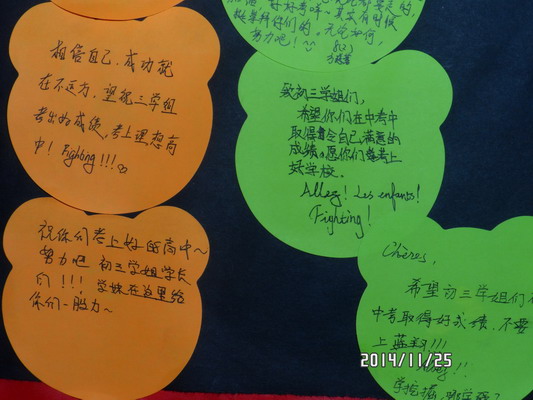 相信自己,成功就
在不远方,望初三学姐
考出好成绩,考上理想高
中! Fighting!!!
祝你们考上好的高中~
努力吧 初三学姐学长
们!!! 学妹在这里给
你们一股力~
努力吧!
致初三学姐们,
希望你们在中考中
取得令自己满意的
成绩。愿你们都考上
好学校。
Allez! Les enfants!
Fighting!
Chères,
希望初三学姐们
中考取得好成绩,不要
上蓝翔!!!
Allez!!
2014/11/25